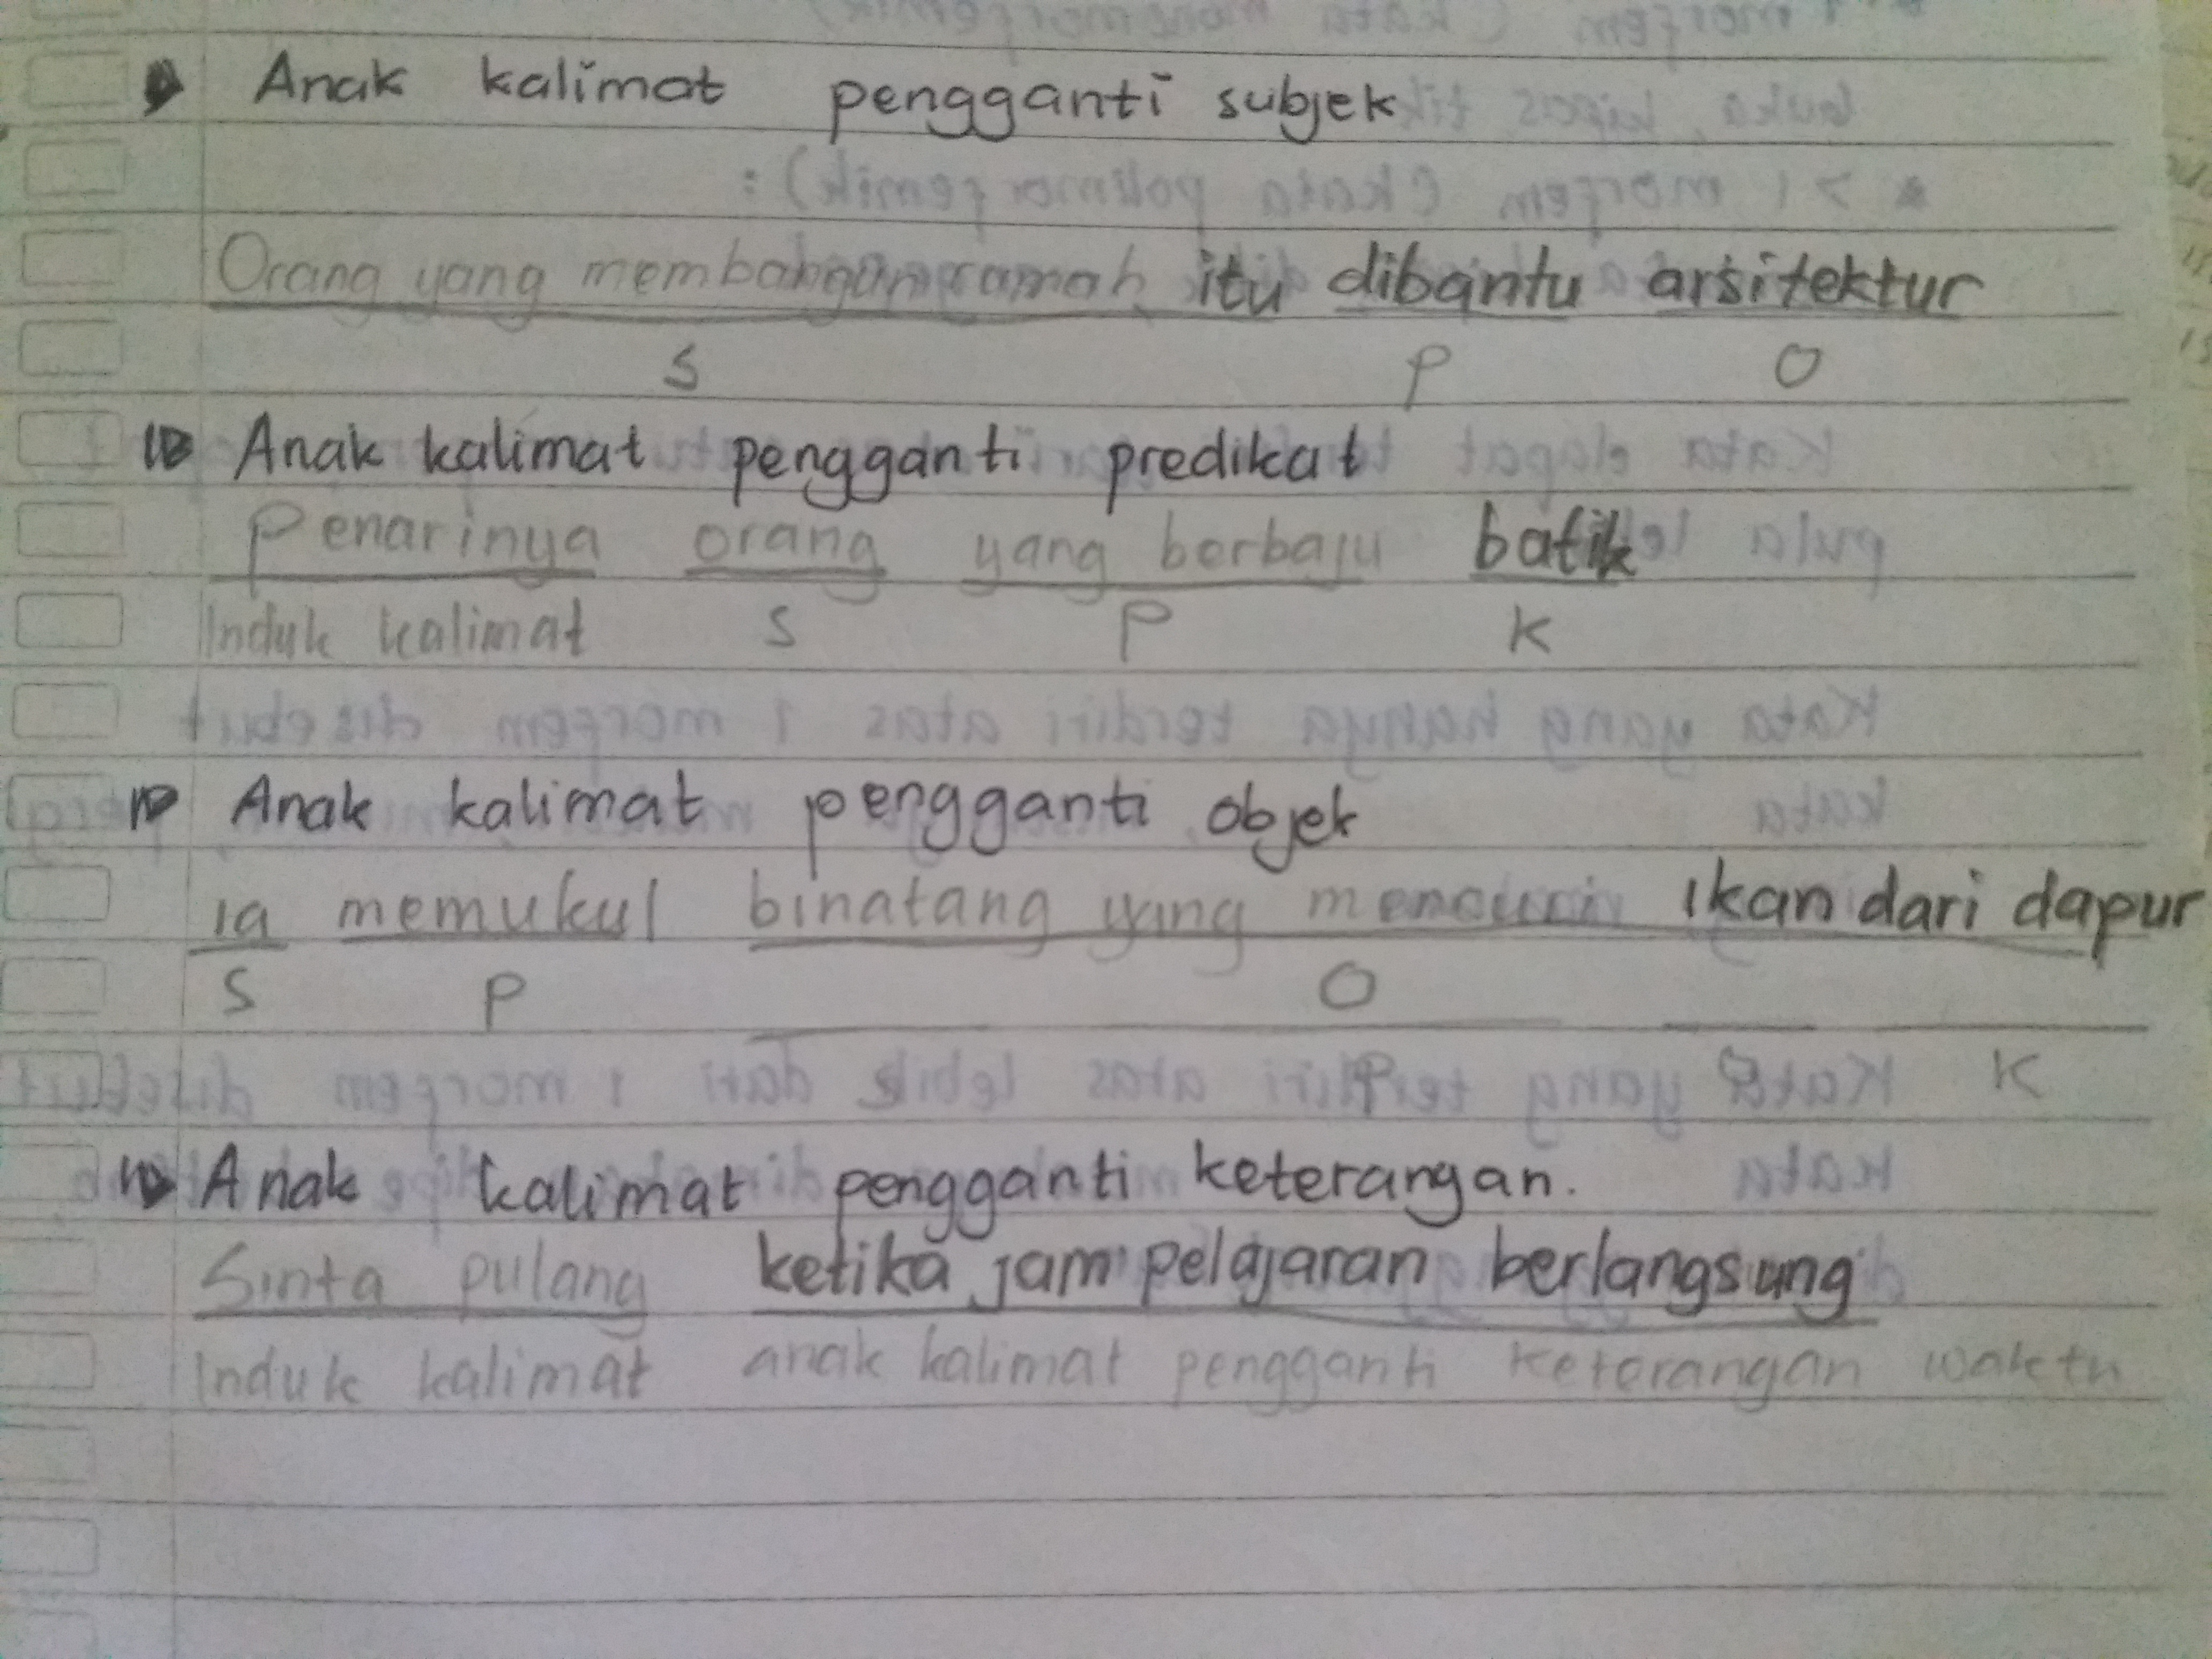 Anak kalimat pengganti subjek
Orang yang membangun rumah itu dibantu arsitektur
S P O
Anak kalimat pengganti predikat
Penarinya orang yang berbaju batik
Induk kalimat S P K
Anak kalimat pengganti objek
ia memukul binatang yang mencuri ikan dari dapur
S P O
K
Anak kalimat pengganti keterangan.
Sinta pulang ketika jam pelajaran berlangsung
Induk kalimat anak kalimat pengganti keterangan waktu